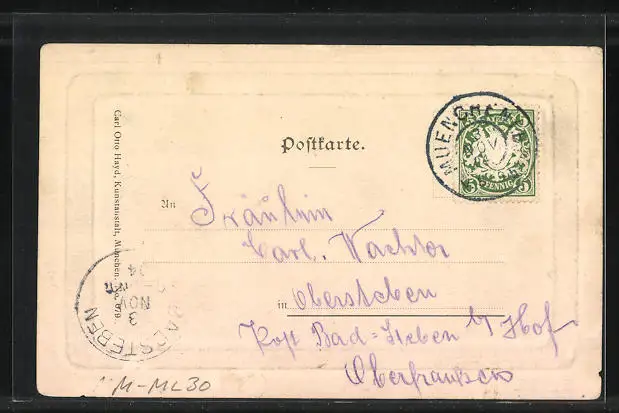 Postkarte.
MUENCHEN
PFENNIG
5 5
An
Fräulein
Carl. Wachter
in Obersteben
Post Bad-Steben b/ Hof
Oberfranken
Carl Otto Hayd, Kunstanstalt, München. No. 679.
BAD STEBEN
3
NOV
04
M-ML30